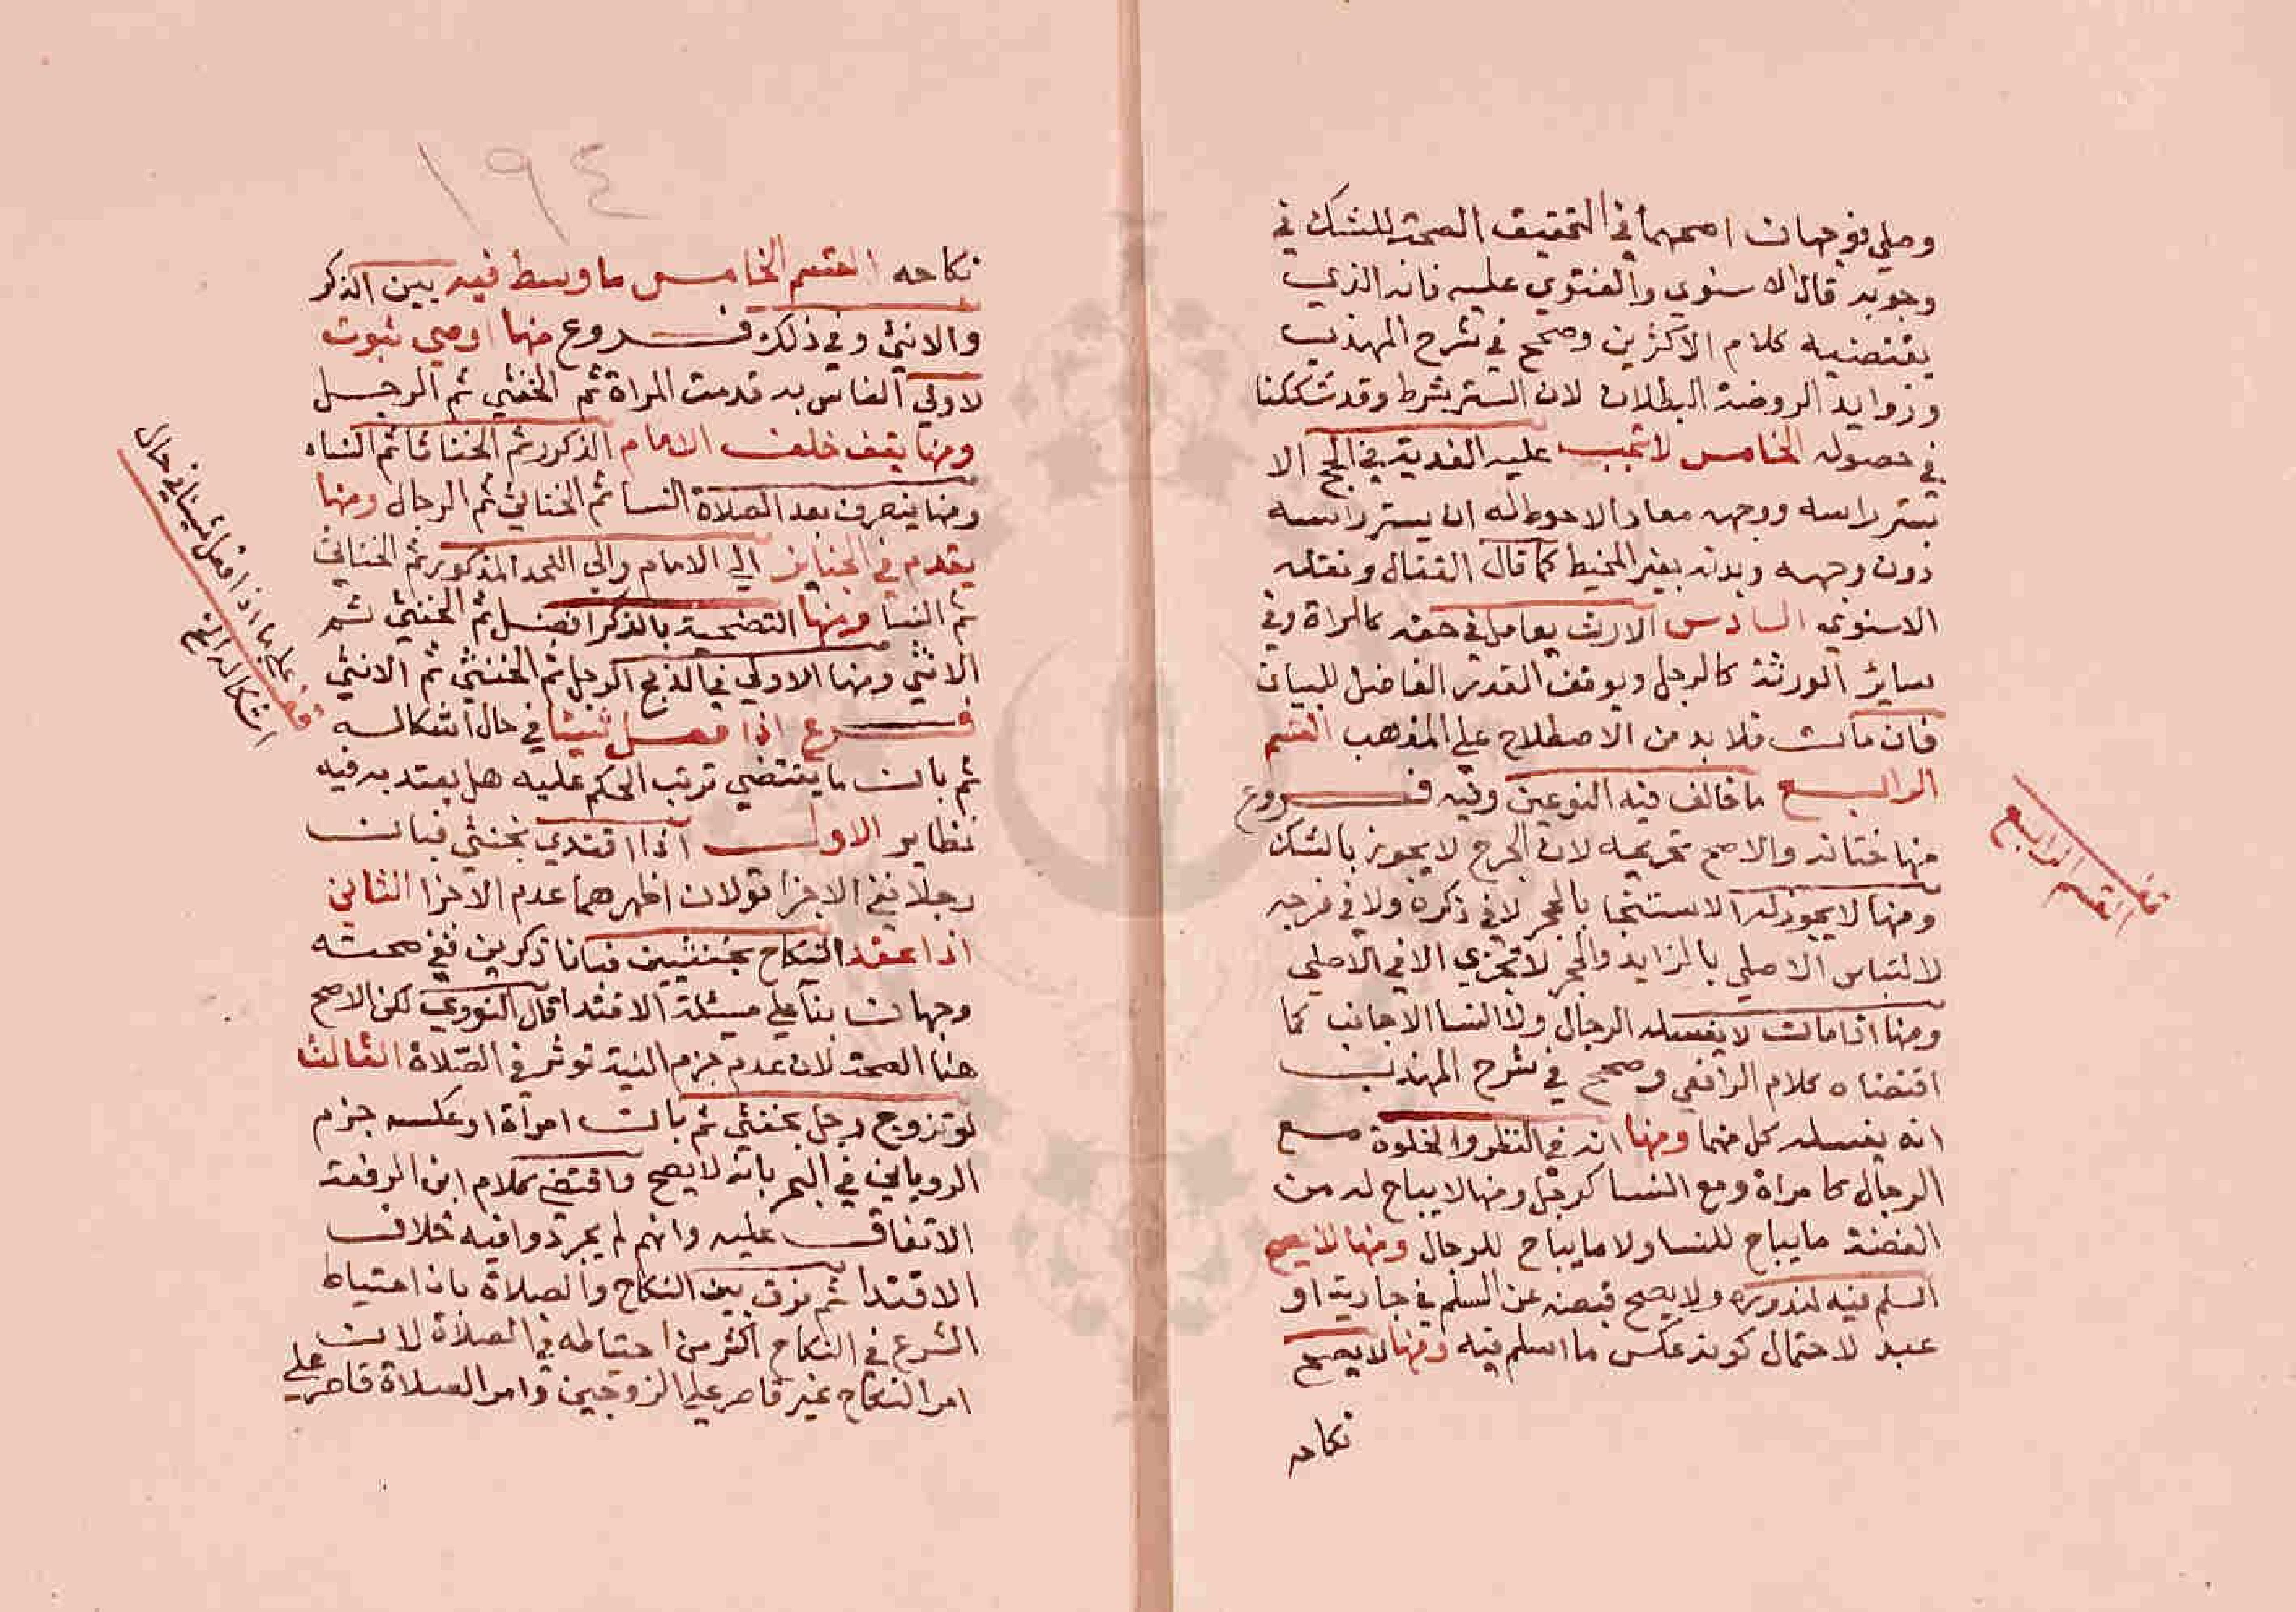 وصلي فوجهان اصحهما في التحقيق الصحة للشك في
وجوبه قال الاسنوي والفتوي عليه فانه الذي
يقتضيه كلام الاكثرين وصحح في شرح المهذب
وزوايد الروضة البطلان لان الستر شرط وقد شككنا
في حصوله الخامس لا تجب عليه الفدية في الحج الا
بستر راسه ووجهه معا والاحوط له ان يستر راسه
دون وجهه وبدنه بغير المخيط كما قال القفال ونقله
الاسنوي السادس الارث يعامل في حقه كالمراة وفي
ساير الورثة كالرجل ويوقف القدر الفاضل للبيان
فان مات فلا بد من الاصطلاح علي المذهب القسم
الرابع ما خالف فيه النوعين وفيه فروع
منها ختانه والاصح تحريمه لان الجرح لا يجوز بالشك
ومنها لا يجوز له الاستنجا بالحجر لا في ذكره ولا في فرجه
لالتباس الاصلي بالزايد والحجر لا تجزي الا في الاصلي
ومنها اذا مات لا يغسله الرجال ولا النسا الاجانب كما
اقتضاه كلام الرافعي وصحح في شرح المهذب
انه يغسله كل منهما ومنها انه في النظر والخلوة مع
الرجال كامراة ومع النسا كرجل ومنها لا يباح له من
الفضة ما يباح للنسا ولا ما يباح للرجال ومنها لا يصح
السلم فيه لندوره ولا يصح قبضه عن السلم في جارية او
عبد لاحتمال كونه عكس ما اسلم فيه ومنها لا يصح
نكاحه
قف
القسم الرابع
١٩٤
نكاحه القسم الخامس ما وسط فيه بين الذكر
والانثي وفي ذلك فروع منها اوصي بثوب
لاولي الناس به قدمت المراة ثم الخنثي ثم الرجل
ومنها يقف خلف الامام الذكور ثم الخناثا ثم النساء
ومنها ينصرف بعد الصلاة النسا ثم الخناثي ثم الرجال ومنها
يقدم في الجنايز الي الامام والي اللحد الذكور ثم الخناثي
ثم النسا ومنها التضحية بالذكر افضل ثم الخنثي ثم
الانثي ومنها الاولي في الذبح الرجل ثم الخنثي ثم الانثي
فرع اذا فعل شيئا في حال اشكاله
ثم بان ما يقتضي ترتب الحكم عليه هل يعتد به فيه
نظاير الاول اذا اقتدي بخنثي فبان
رجلا ففي الاجزا قولان اظهرهما عدم الاجزا الثاني
اذا عقد النكاح بخنثيين فبانا ذكرين ففي صحته
وجهان بنا علي مسئلة الاقتدا قال النووي لكن الاصح
هنا الصحة لان عدم جزم النية توثر في الصلاة الثالث
لو تزوج رجل بخنثي ثم بانت امرأة او عكسه جزم
الروياني في البحر بانه لا يصح واقتضي كلام ابن الرفعة
الاتفاق عليه وانهم لم يجروا فيه خلاف
الاقتدا ثم فرق بين النكاح والصلاة بان احتياط
الشرع في النكاح اكثر من احتياطه في الصلاة لان
امر النكاح غير قاصر علي الزوجين وامر الصلاة قاصر علي
قف علي ما اذا فعل شيئا في حال
اشكاله الخ